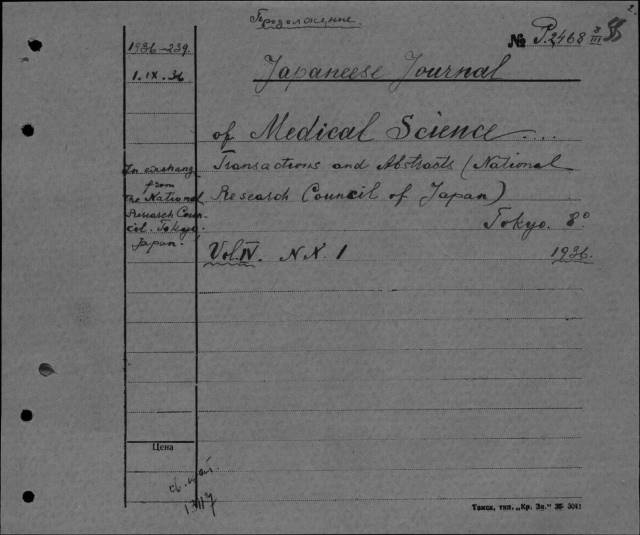 Продолжение.
2.
№ P.2468 3/III 55
1936-239.
1.IX.36
Japaneese Journal
of Medical Science...
Transactions and Abstracts (National
Research Council of Japan)
Tokyo. 8°
Vol.IV. N.X. 1 1936.
In exchang
from
the National
Research Coun-
cil. Tokyo.
Japan.
Цена
Томск, тип. „Кр. Зн." ЗБ 5041